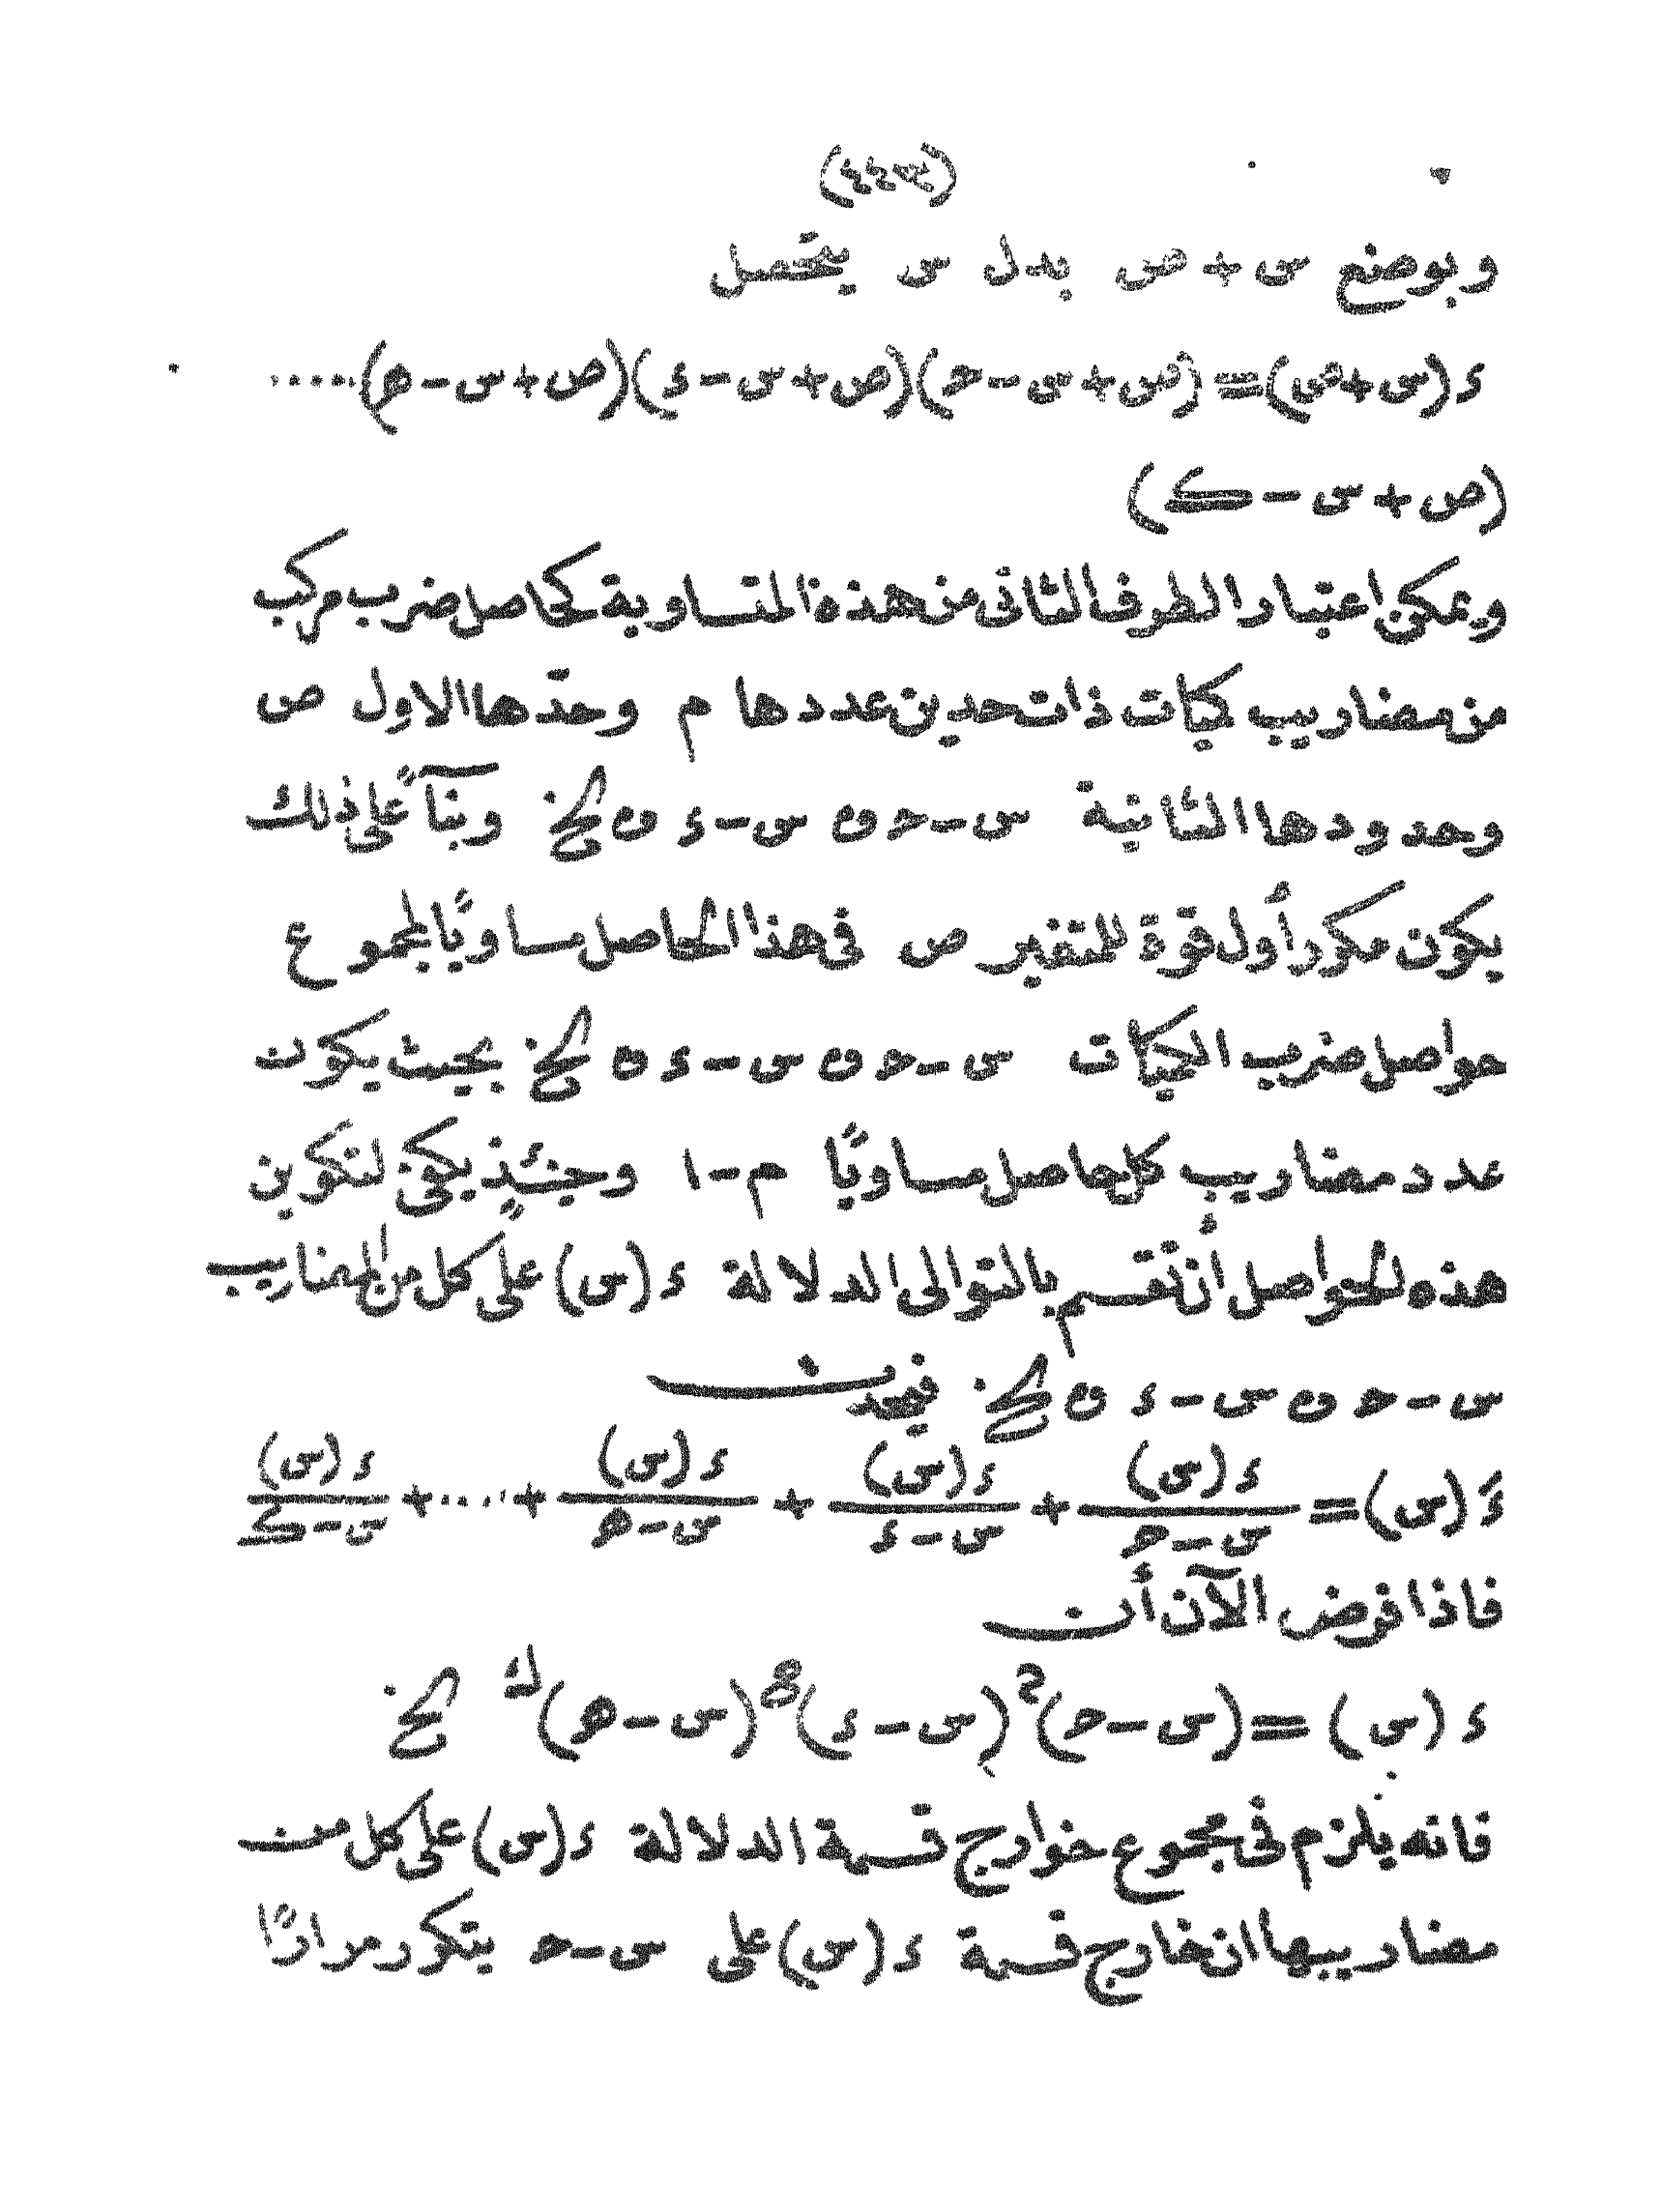 (٣٤٤)
وبوضع س + ص بدل س يتحصل
ء (س+ص) = (ص+س-حـ)(ص+س-ء)(ص+س-هـ)....
(ص+س-ك)
ويمكن اعتبار الطرف الثانى من هذه المتساوية كحاصل ضرب مركب
من مضاريب كميات ذات حدين عددها م وحدّها الاول ص
وحدودها الثانية س-حـ و س-ء و الخ وبنآءً على ذلك
يكون مكرر أول قوة للمتغير ص فى هذا الحاصل مساويًا لمجموع
حواصل ضرب الكميات س-حـ و س-ء و الخ بحيث يكون
عدد مضاريب كل حاصل مساويًا م-١ وحينئذٍ يكفى لتكوين
هذه الحواصل أن تقسم بالتوالى الدلالة ء (س) على كل من المضاريب
س-حـ و س-ء و الخ فيحدث
ءَ (س) = ء (س)/س-حـ + ء (س)/س-ء + ء (س)/س-هـ + .... + ء (س)/س-ك
فاذا فرض الآن أن
ء (س) = (س-حـ)^2 (س-ء)^8 (س-هـ)^ك الخ
فانه يلزم فى مجموع خوارج قسمة الدلالة ء (س) على كل من
مضاريبها ان خارج قسمة ء (س) على س-حـ يتكرر مرارًا